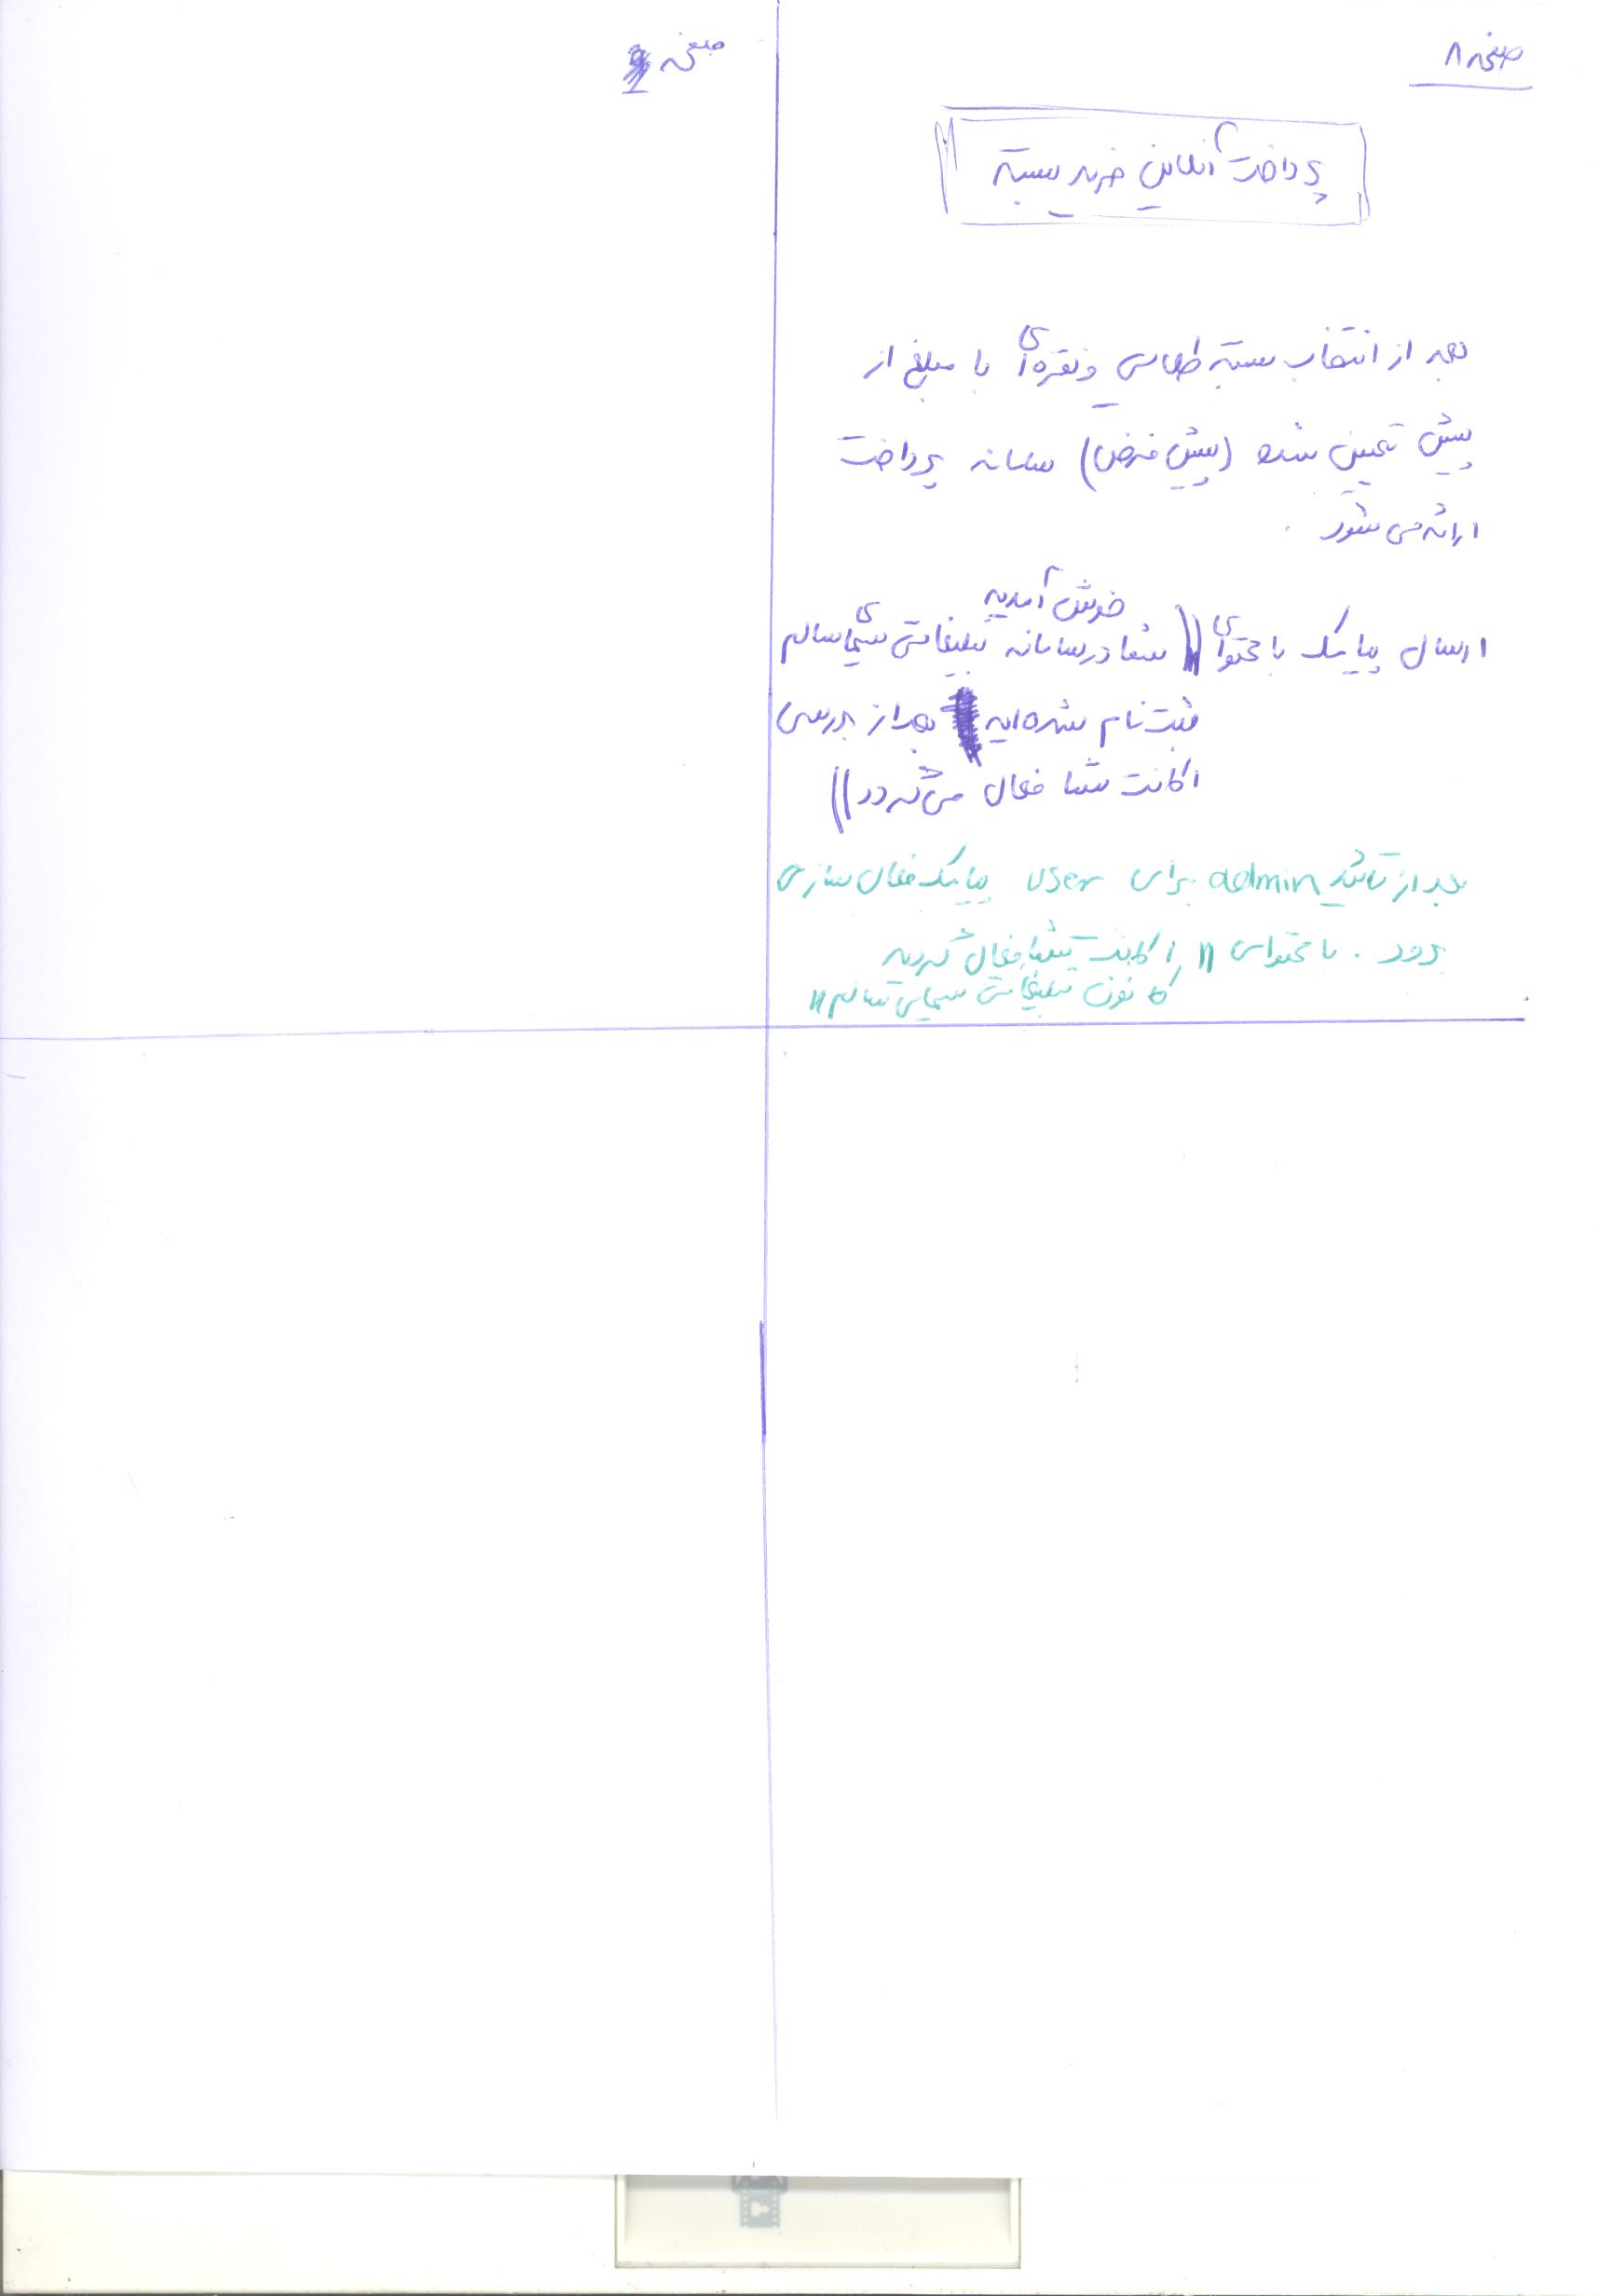 صفحه ۸
پرداخت آنلاین خرید بسته
بعد از انتخاب بسته طلایی و نقره‌ای با مبلغ از
پیش تعیین شده (پیش فرض) سامانه پرداخت
ارائه می شود .
ارسال پیامک با محتوای (( شما در سامانه تبلیغاتی سیمای سالم
خوش آمدید
ثبت نام شده اید بعد از بررسی
اکانت شما فعال می گردد ))
بعد از تائید admin برای user پیامک فعال سازی
برود . با محتوای " اکانت شما فعال گردید
کانون تبلیغاتی سیمای سالم "
صفحه